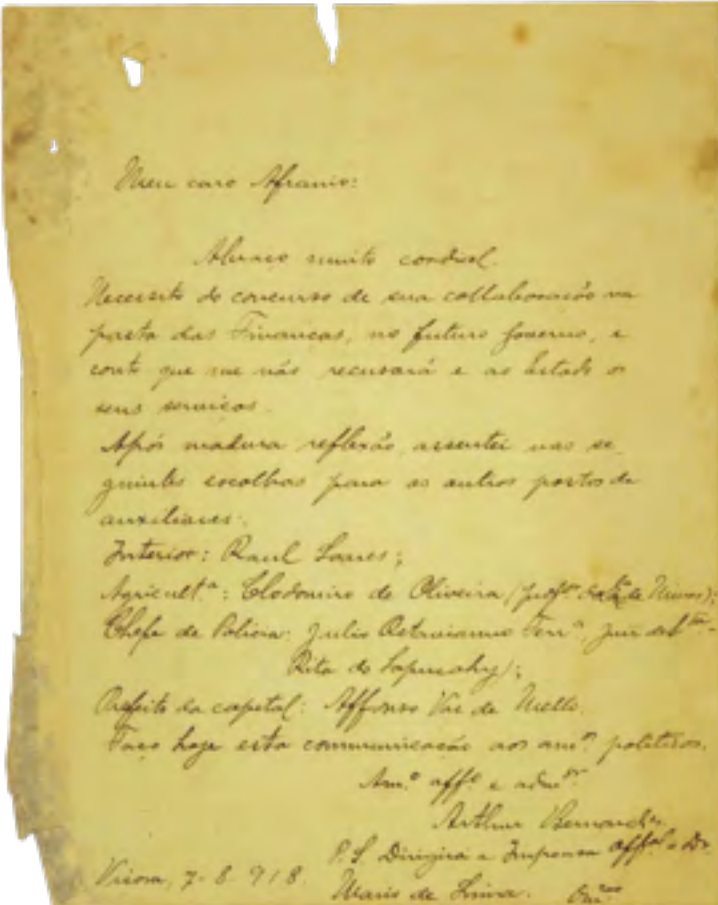 Meu caro Afranio:
Abraço muito cordial.
Necessito do concurso de sua collaboração na
pasta das Finanças, no futuro governo, e
conto que me não recusará e ao Estado os
seus serviços.
Após madura reflexão, assentei nas se
guintes escolhas para os outros postos de
auxiliares:
Interior: Raul Soares;
Agricult.ª: Clodomiro de Oliveira (prof.or de Minas);
Chefe de Policia: Julio Octaviano Ferr.ª, juiz de S.ta
Rita do Sapucahy);
Prefeito da capital: Affonso Vaz de Mello.
Faço hoje esta communicação aos am.os politicos.
Am.º aff.º e adm.or
Arthur Bernardes
P.S. Dirigirá a Imprensa Off.al o Dr.
Mario de Lima.
Viçosa, 7-8-918.